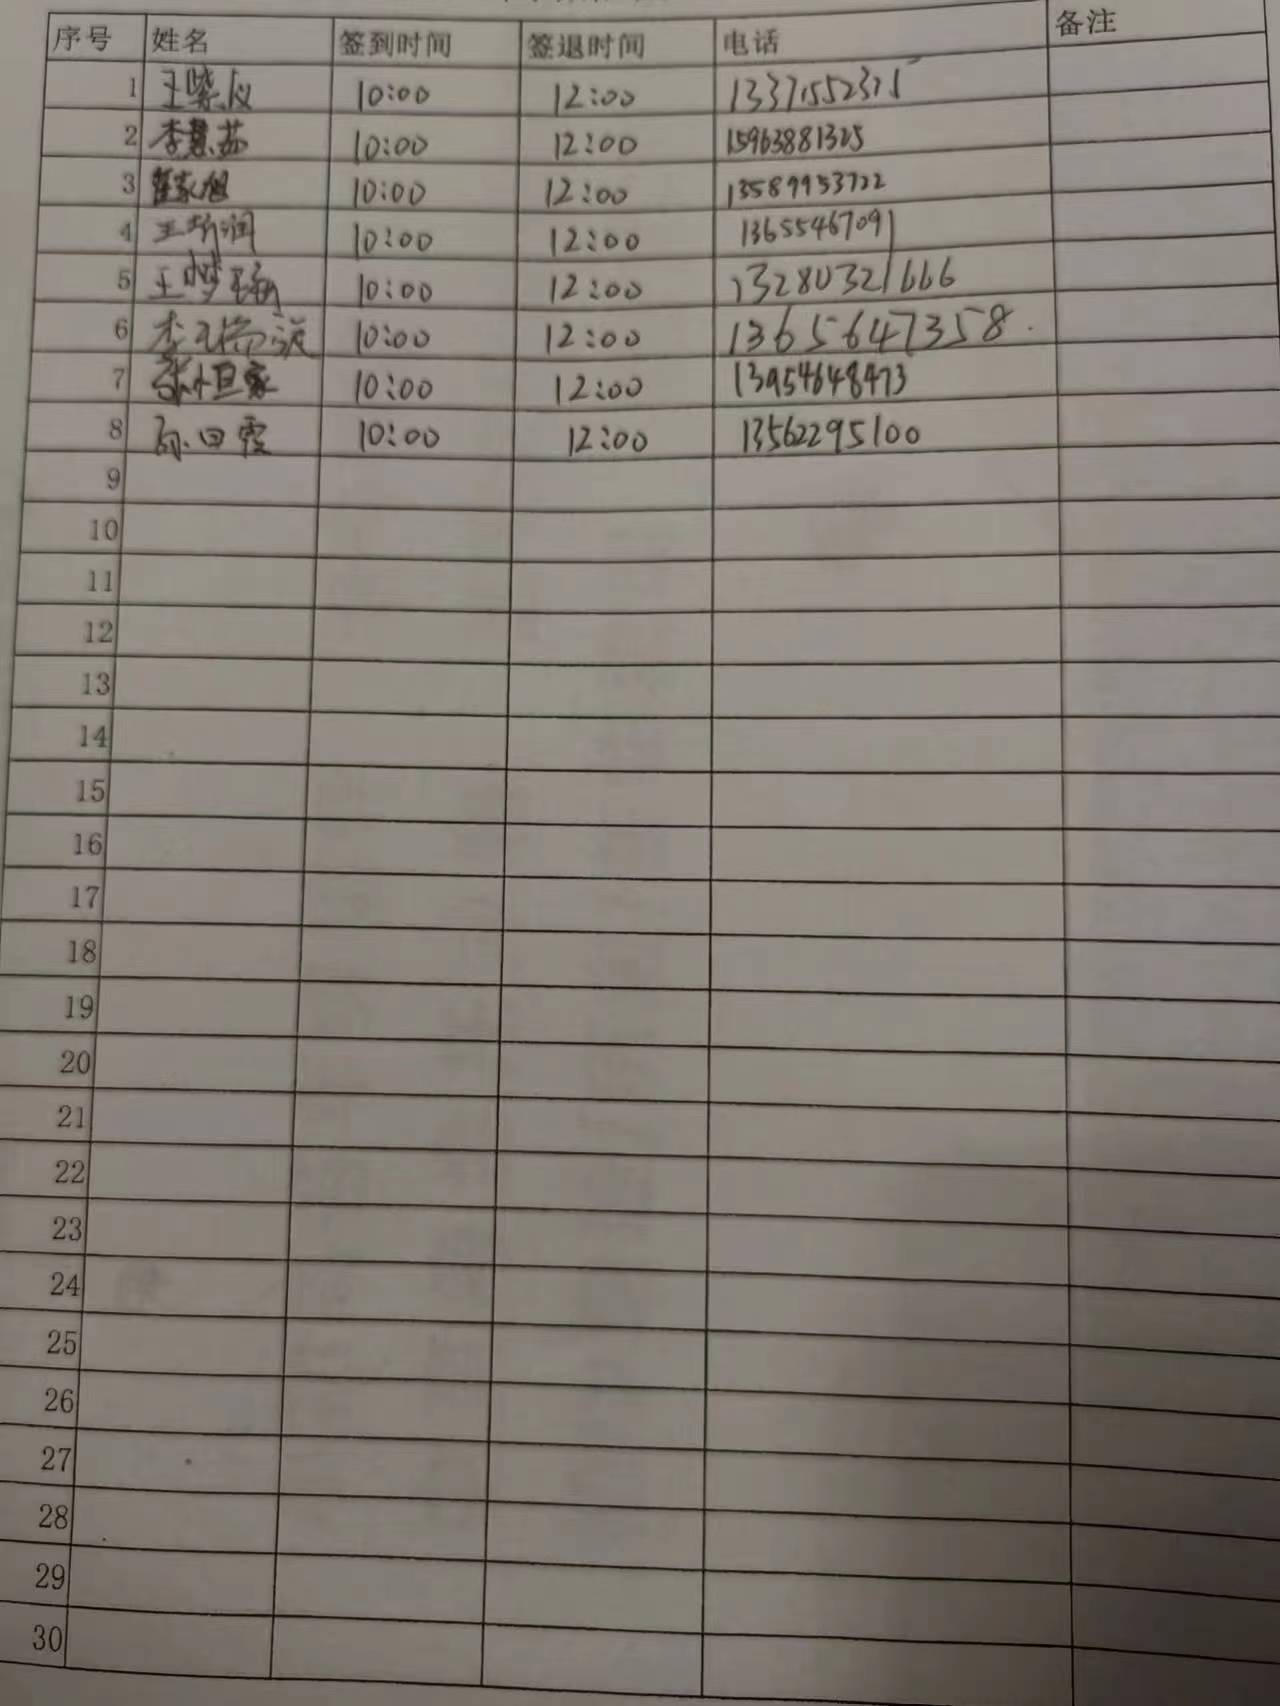 序号 姓名 签到时间 签退时间 电话 备注
1 王紫仪 10:00 12:00 13371552315
2 李慧茹 10:00 12:00 15963881325
3 翟家旭 10:00 12:00 13589953722
4 王 润 10:00 12:00 13655467091
5 王梦 10:00 12:00 13280321666
6 李 10:00 12:00 13656647358
7 张恒家 10:00 12:00 13954648473
8 孙田霞 10:00 12:00 13562295100
9
10
11
12
13
14
15
16
17
18
19
20
21
22
23
24
25
26
27
28
29
30